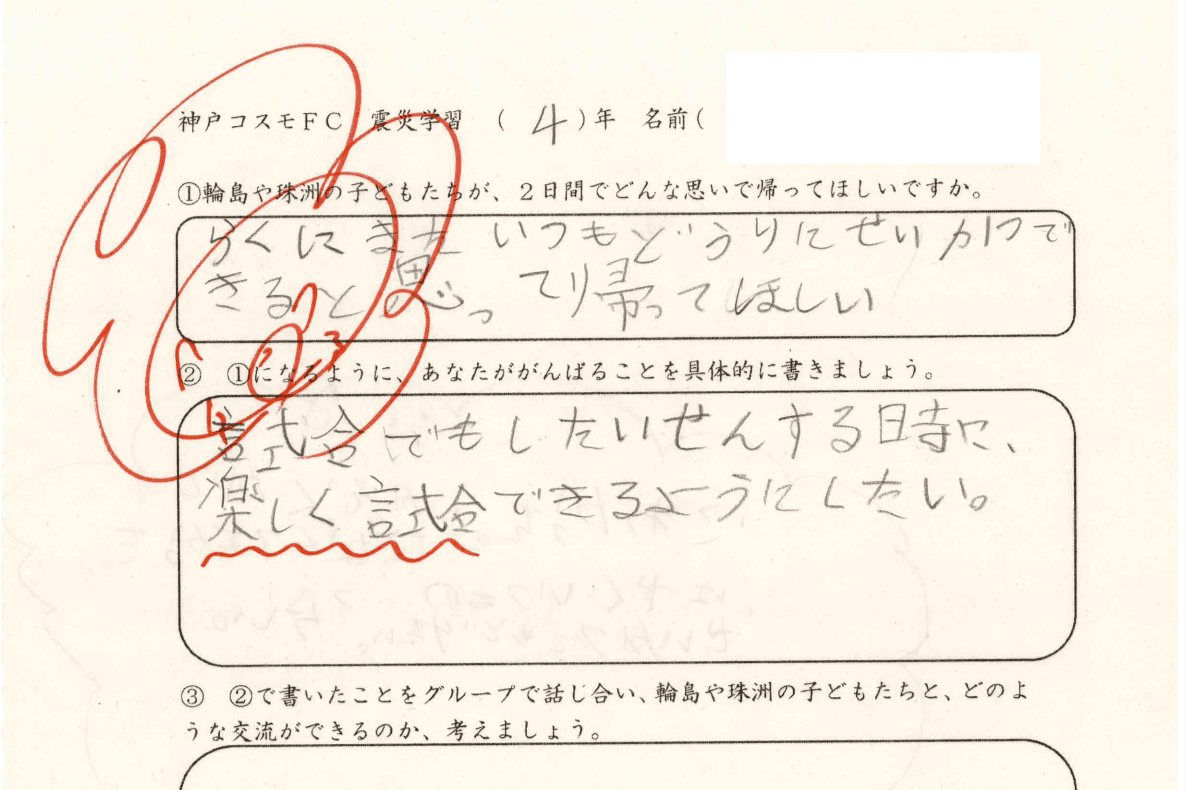 神戸コスモFC 震災学習 (4)年 名前(
①輪島や珠洲の子どもたちが、2日間でどんな思いで帰ってほしいですか。
らくにまた いつもどうりにせいかつで
きると思って帰ってほしい
② ①になるように、あなたががんばることを具体的に書きましょう。
試合でもしたいせんする時に、
楽しく試合できるようにしたい。
③ ②で書いたことをグループで話し合い、輪島や珠洲の子どもたちと、どのよ
うな交流ができるのか、考えましょう。